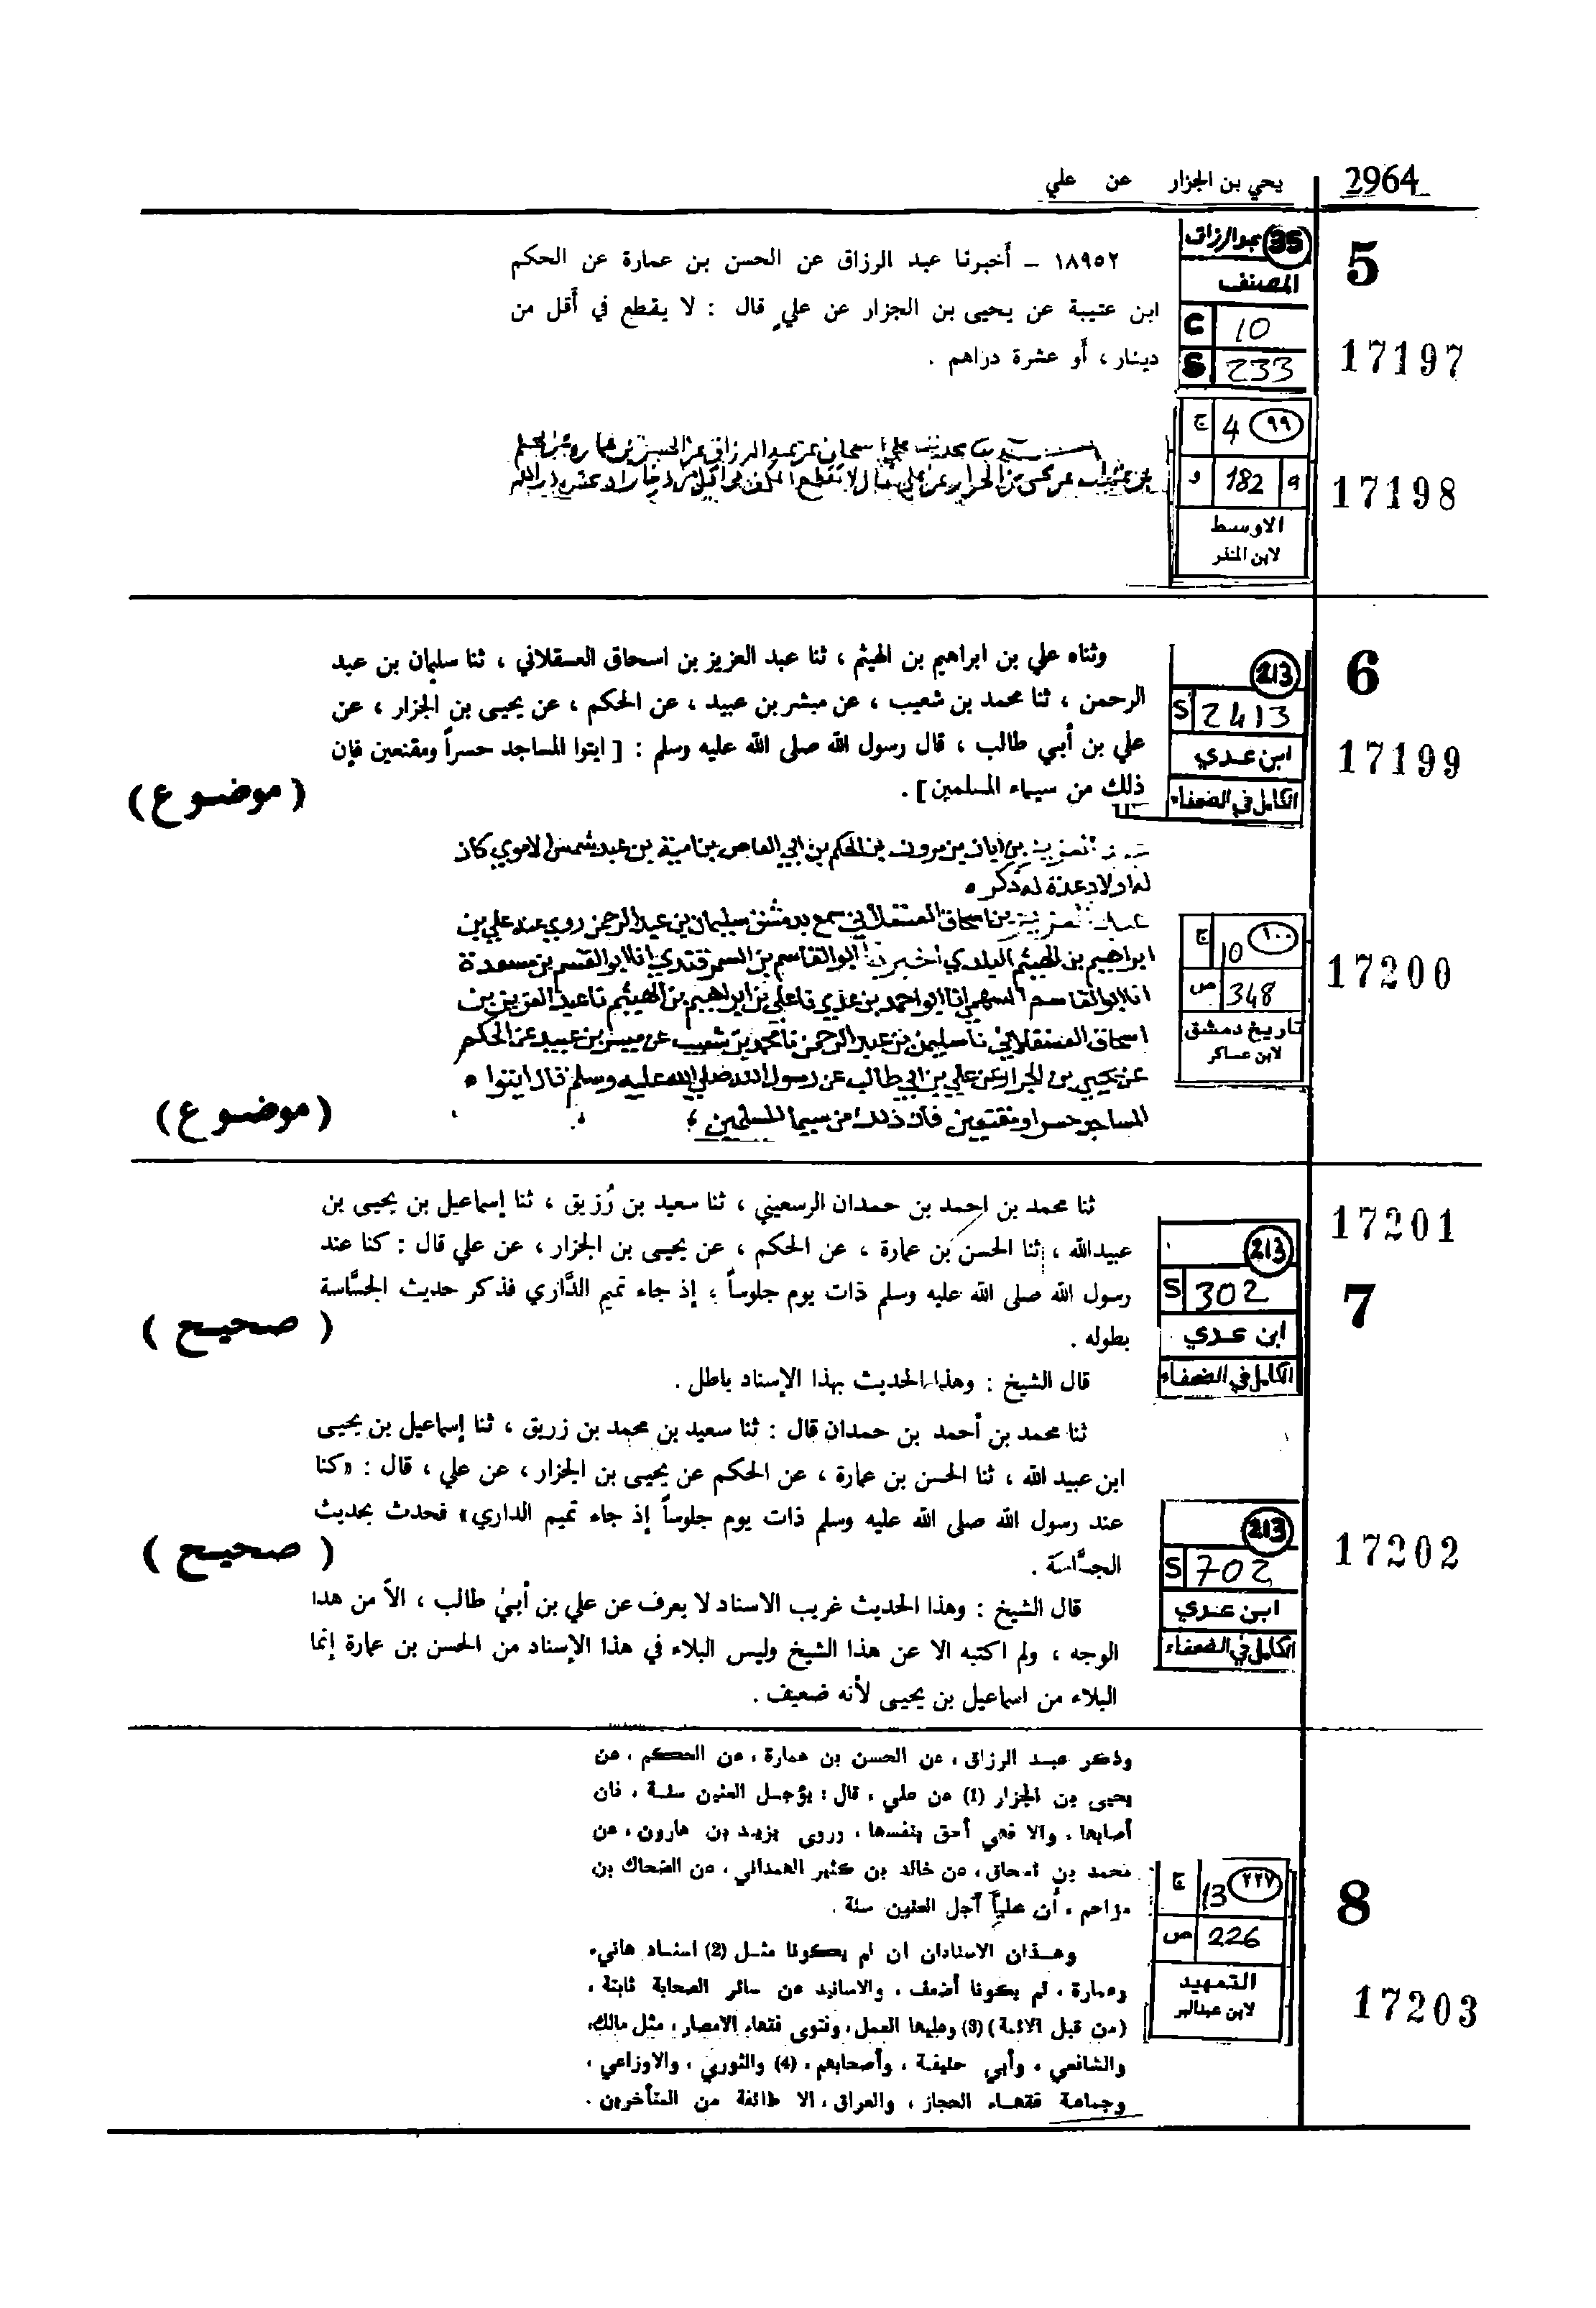 2964
يحي بن الجزار عن علي
5
17197
35 عبد الرزاق
المصنف
C 10
S 233
١٨٩٥٢ – أخبرنا عبد الرزاق عن الحسن بن عمارة عن الحكم
ابن عتيبة عن يحيى بن الجزار عن علي قال : لا يقطع في أقل من
دينار ، أو عشرة دراهم .
17198
٩٩ 4 ج
ق 182 و
الاوسط
لابن المنذر
علي اسحاق عن عبد الرزاق عن الحسن بن عماره عن الحكم
عن يحيى بن الجزار عن علي قال لا تقطع الكف في اقل من دينار او عشره دراهم
6
17199
213
S 2413
ابن عدي
الكامل في الضعفاء
وثناه علي بن ابراهيم بن الهيثم ، ثنا عبد العزيز بن اسحاق العسقلاني ، ثنا سليمان بن عبد
الرحمن ، ثنا محمد بن شعيب ، عن مبشر بن عبيد ، عن الحكم ، عن يحيى بن الجزار ، عن
علي بن أبي طالب ، قال رسول الله صلى الله عليه وسلم : [ ايتوا المساجد حسراً ومقنعين فإن
ذلك من سيماء المسلمين ] .
( موضوع )
17200
١٠٠ 10 ج
348 ص
تاريخ دمشق
لابن عساكر
بن مروان بن الحكم بن ابي العاص بن امية بن عبد شمس الاموي كان
له اولاد عدة له ذكر ه
عبد العزيز بن اسحاق العسقلاني سمع بدمشق سليمان بن عبد الرحمن روي عنه علي بن
ابراهيم بن الهيثم البلدي اخبرنا ابو القاسم بن السمرقندي انا ابو القسم بن مسعدة
انا ابو القاسم السهمي انا ابو احمد بن عدي نا علي بن ابراهيم بن الهيثم نا عبد العزيز بن
اسحاق العسقلاني نا سليمن بن عبد الرحمن نا محمد بن شعيب عن ميسر بن عبيد عن الحكم
عن يحيي بن الجزار عن علي بن ابي طالب عن رسول الله صلي الله عليه وسلم قال ايتوا ه
المساجد حسرا ومقنعين فان ذلك من سيما المسلمين
( موضوع )
17201
7
213
S 302
ابن عدي
الكامل في الضعفاء
ثنا محمد بن احمد بن حمدان الرسعيني ، ثنا سعيد بن رُزيق ، ثنا إسماعيل بن يحيى بن
عبيدالله ، ثنا الحسن بن عمارة ، عن الحكم ، عن يحيى بن الجزار ، عن علي قال : كنا عند
رسول الله صلى الله عليه وسلم ذات يوم جلوساً ؛ إذ جاء تميم الدَّاري فذكر حديث الجسَّاسة
بطوله .
( صحيح )
قال الشيخ : وهذا الحديث بهذا الإسناد باطل .
17202
213
S 702
ابن عدي
الكامل في الضعفاء
ثنا محمد بن أحمد بن حمدان قال : ثنا سعيد بن محمد بن زريق ، ثنا إسماعيل بن يحيى
ابن عبيد الله ، ثنا الحسن بن عمارة ، عن الحكم عن يحيى بن الجزار ، عن علي ، قال : «كنا
عند رسول الله صلى الله عليه وسلم ذات يوم جلوساً إذ جاء تميم الداري» فحدث بحديث
الجسَّاسَة .
( صحيح )
قال الشيخ : وهذا الحديث غريب الاسناد لا يعرف عن علي بن أبي طالب ، الاّ من هذا
الوجه ، ولم اكتبه الا عن هذا الشيخ وليس البلاء في هذا الإسناد من الحسن بن عمارة إنما
البلاء من اسماعيل بن يحيى لأنه ضعيف .
8
17203
٢٢٧ 13 ج
226 ص
التمهيد
لابن عبدالبر
وذكر عبد الرزاق ، عن الحسن بن عمارة ، عن الحكم ، عن
يحيى بن الجزار (1) عن علي ، قال : يؤجل العنين سنة ، فان
أصابها ، والا فهي أحق بنفسها ، وروى يزيد بن هارون ، عن
محمد بن اسحاق ، عن خالد بن كثير الهمداني ، عن الضحاك بن
مزاحم ، أن علياً أجل العنين سنة .
وهذان الاسنادان ان لم يكونا مثل (2) اسناد هانيء
وعمارة ، لم يكونا أضعف ، والاسانيد عن سائر الصحابة ثابتة ،
(من قبل الائمة) (3) وعليها العمل ، وفتوى فقهاء الامصار ، مثل مالك ،
والشافعي ، وأبي حنيفة ، وأصحابهم ، (4) والثوري ، والاوزاعي ،
وجماعة فقهاء الحجاز ، والعراق ، الا طائفة من المتأخرين .